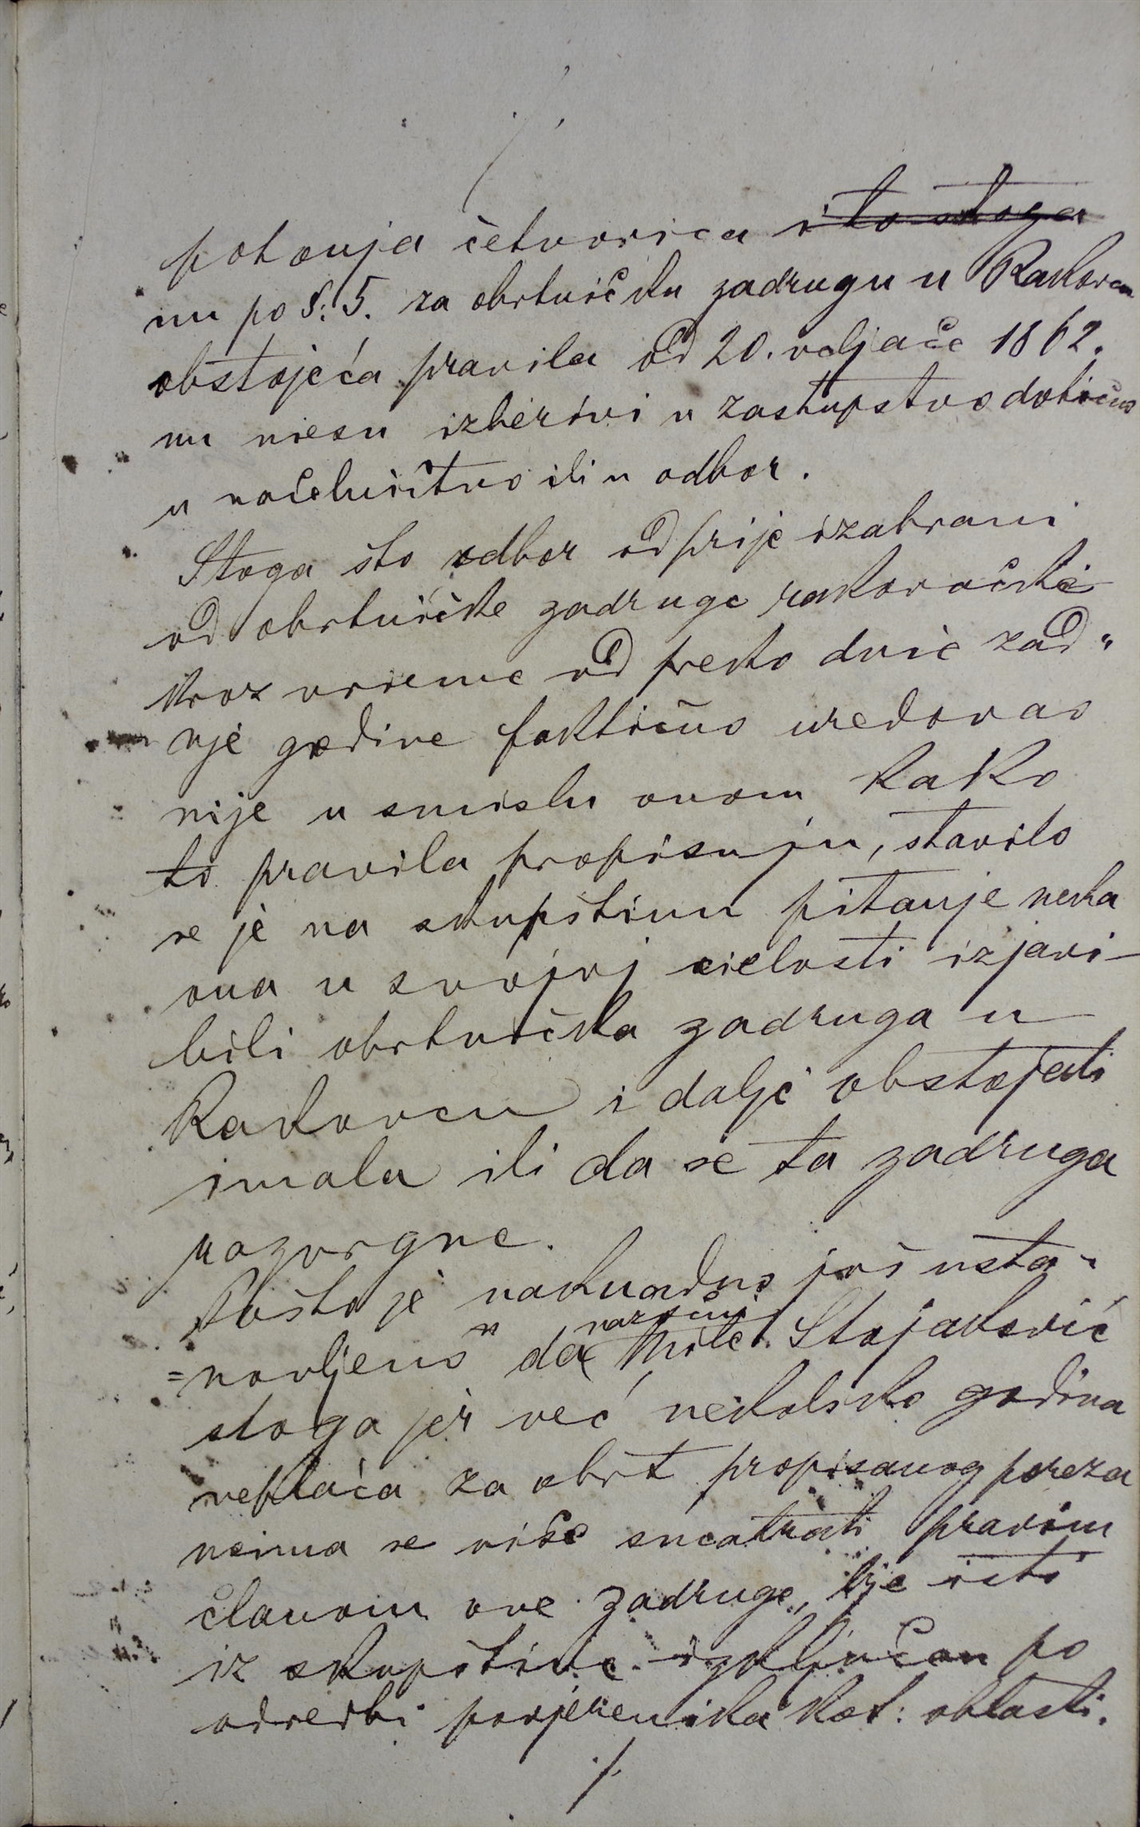 potonja četvorica i to stoga
nu po §: 5. za obrtničku zadrugu u Rakovcu
obstojeća pravila od 20. veljače 1862.
nu niesu izberivi u zastupstvo dotično
u načelničtvo ili u odbor.
Stoga što odbor od prije izabrani
od obrtničke zadruge rakovačke
kroz vrieme od preko dvie zad„
nje godine faktično uredovao
nije u smislu onom kako
to pravila propisuju, stavilo
se je na skupštinu pitanje neka
ona u svojoj cielosti izjavi
bili obrtnička zadruga u
Rakovcu i dalje obstojati
imala ili da se ta zadruga
razvrgne.
Pošto je naknadno još usta-
=novljeno da nazočni Mile Stojaković
stoga jer već nekoliko godina
neplaća za obrt propisanog poreza
neima se više smatrati pravim
članom ove zadruge, bje isti
iz skupštine izključen po
odredbi povjerenika kot: oblasti.
./.